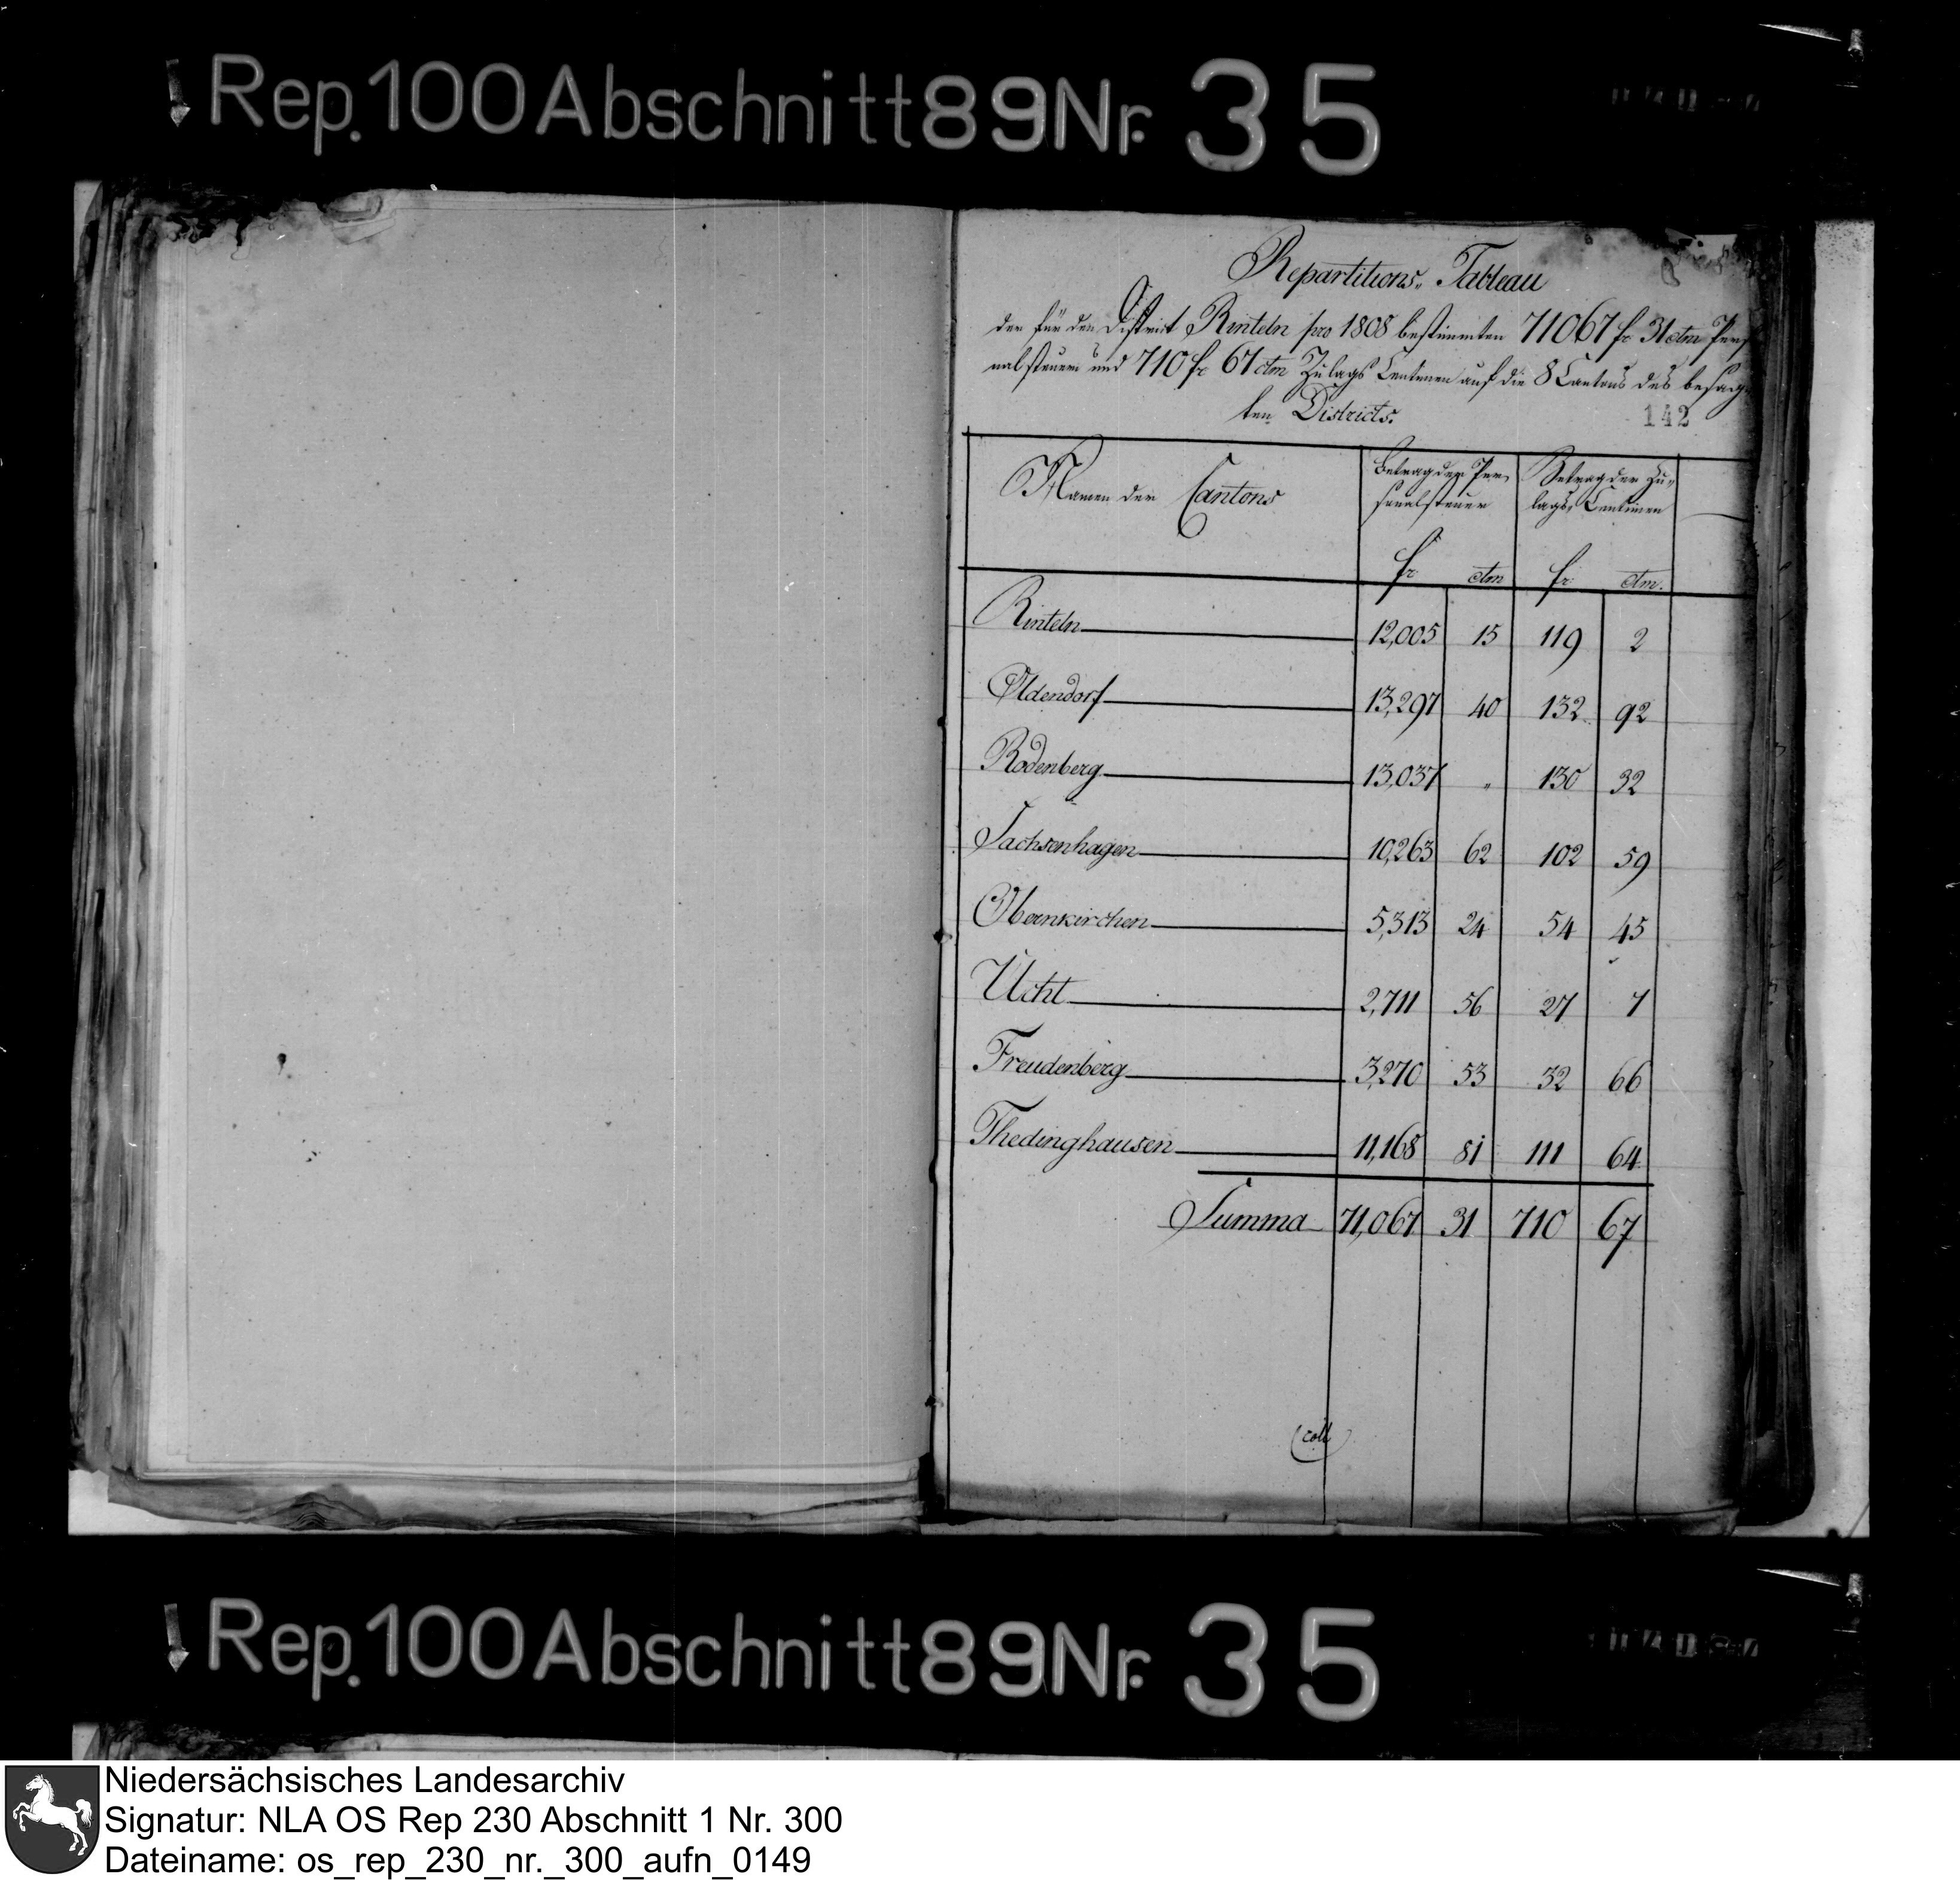 Rep. 100 Abschnitt 89 Nr. 35
Repartitions-Tableau
der für den District Rinteln pro 1808 bestimmten 71067 fr 31 ctm Perso
nalsteuern und 710 fr 67 ctm Zulags Centimen auf die 8 Cantons des besag
ten Districts.
142
Namen der Cantons | Betrag der Per- | Betrag der Zu-
sonalsteuer | lags, Centimen
fr ctm fr ctm.
Rinteln 12,005 15 119 2
Oldendorf 13,297 40 132 92
Rodenberg 13,037 " 130 32
Sachsenhagen 10,263 62 102 59
Obernkirchen 5,313 24 54 45
Ucht 2,711 56 27 7
Freudenberg 3,270 53 32 66
Thedinghausen 11,168 81 111 64
Summa 71,067 31 710 67
coll
Rep. 100 Abschnitt 89 Nr. 35
Niedersächsisches Landesarchiv
Signatur: NLA OS Rep 230 Abschnitt 1 Nr. 300
Dateiname: os_rep_230_nr._300_aufn_0149